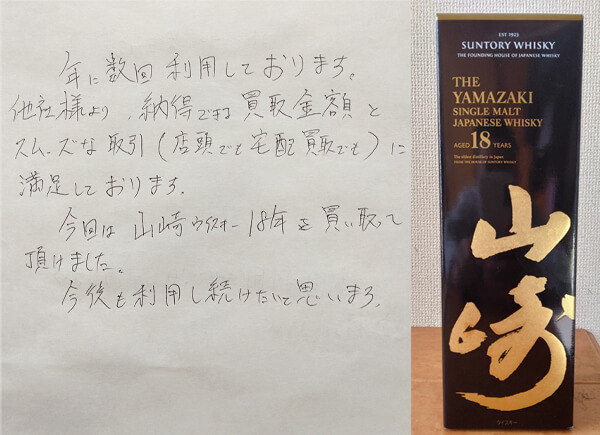 年に数回利用しております。
他社様より、納得できる買取金額と
スムーズな取引(店頭でも宅配買取でも)に
満足しております。
今回は山崎ウイスキー18年を買い取って
頂けました。
今後も利用し続けたいと思います。
EST 1923
SUNTORY WHISKY
THE FOUNDING HOUSE OF JAPANESE WHISKY
THE
YAMAZAKI
SINGLE MALT
JAPANESE WHISKY
AGED 18 YEARS
The oldest distillery in Japan
FROM THE HOUSE OF SUNTORY WHISKY
山崎
ウイスキー